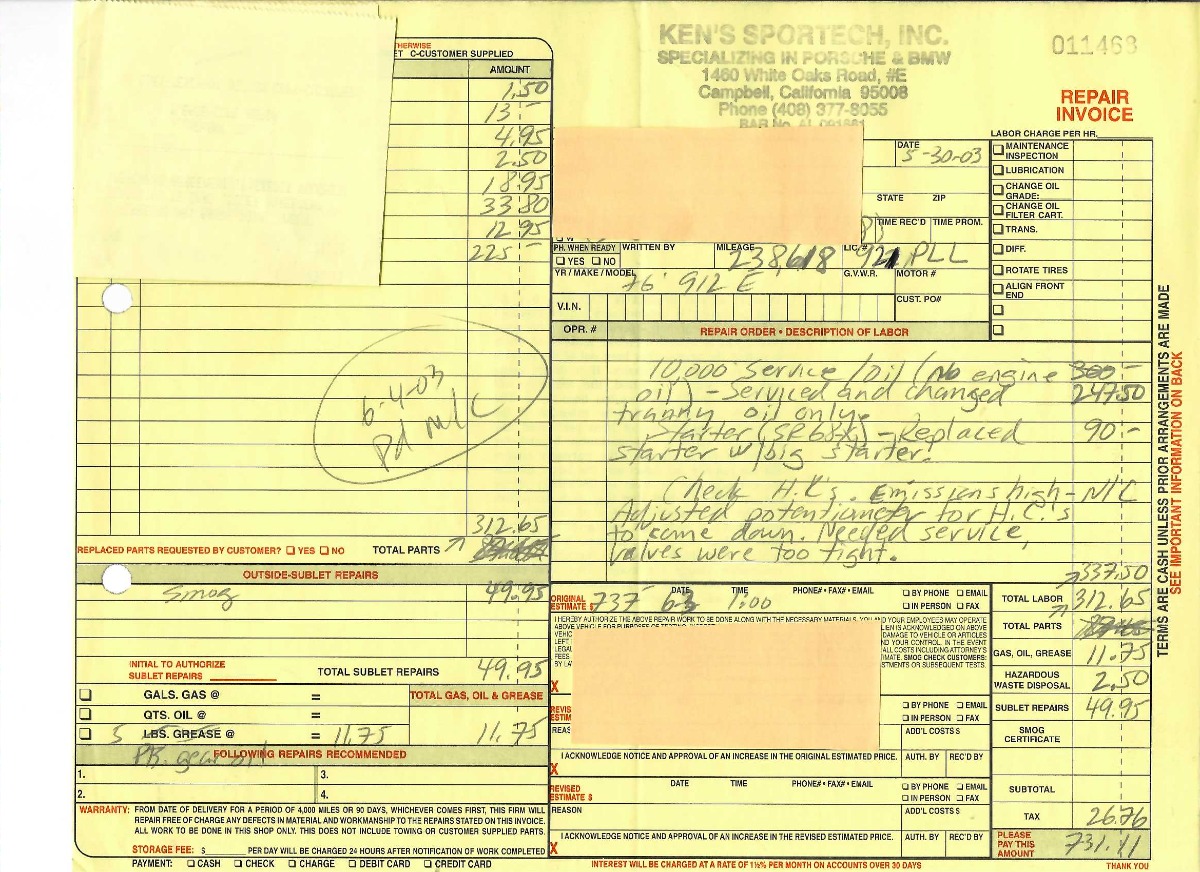 KEN'S SPORTECH, INC.
SPECIALIZING IN PORSCHE & BMW
1460 White Oaks Road, #E
Campbell, California 95008
Phone (408) 377-8055
BAR No.
011468
REPAIR
INVOICE
LABOR CHARGE PER HR.
C-CUSTOMER SUPPLIED
AMOUNT
1.50
13 -
4.95
2.50
18.95
33.80
12.95
225 -
6-4-03
Pd M/C
312.65
REPLACED PARTS REQUESTED BY CUSTOMER? YES NO TOTAL PARTS
OUTSIDE-SUBLET REPAIRS
Smog 49.95
INITIAL TO AUTHORIZE
SUBLET REPAIRS
TOTAL SUBLET REPAIRS 49.95
GALS. GAS @ =
TOTAL GAS, OIL & GREASE
QTS. OIL @ =
5 LBS. GREASE @ = 11.75 11.75
FOLLOWING REPAIRS RECOMMENDED
1. 3.
2. 4.
WARRANTY: FROM DATE OF DELIVERY FOR A PERIOD OF 4,000 MILES OR 90 DAYS, WHICHEVER COMES FIRST, THIS FIRM WILL
REPAIR FREE OF CHARGE ANY DEFECTS IN MATERIAL AND WORKMANSHIP TO THE REPAIRS STATED ON THIS INVOICE.
ALL WORK TO BE DONE IN THIS SHOP ONLY. THIS DOES NOT INCLUDE TOWING OR CUSTOMER SUPPLIED PARTS.
STORAGE FEE: $ PER DAY WILL BE CHARGED 24 HOURS AFTER NOTIFICATION OF WORK COMPLETED
PAYMENT: CASH CHECK CHARGE DEBIT CARD CREDIT CARD
DATE
5-30-03
STATE ZIP
TIME REC'D TIME PROM.
PH. WHEN READY
YES NO
WRITTEN BY
MILEAGE
238,618
LIC. #
921 PLL
YR / MAKE / MODEL
76' 912 E
G.V.W.R. MOTOR #
V.I.N.
CUST. PO#
OPR. # REPAIR ORDER • DESCRIPTION OF LABOR
10,000 Service /oil (No engine 300 -
oil) - Serviced and changed 247.50
tranny oil only.
Starter (SR68X) - Replaced 90 -
starter w/big starter.
Check H.C's. Emissions high - N/C
Adjusted potentiometer for H.C.'s
to come down. Needed service,
valves were too tight.
337.50
MAINTENANCE
INSPECTION
LUBRICATION
CHANGE OIL
GRADE:
CHANGE OIL
FILTER CART.
TRANS.
DIFF.
ROTATE TIRES
ALIGN FRONT
END
TERMS ARE CASH UNLESS PRIOR ARRANGEMENTS ARE MADE
SEE IMPORTANT INFORMATION ON BACK
ORIGINAL
ESTIMATE $ 737
DATE 6-3
TIME 1:00
PHONE# • FAX# • EMAIL
BY PHONE EMAIL
IN PERSON FAX
I HEREBY AUTHORIZE THE ABOVE REPAIR WORK TO BE DONE ALONG WITH THE NECESSARY MATERIALS, YOU AND YOUR EMPLOYEES MAY OPERATE
X
BY PHONE EMAIL
IN PERSON FAX
ADD'L COSTS $
I ACKNOWLEDGE NOTICE AND APPROVAL OF AN INCREASE IN THE ORIGINAL ESTIMATED PRICE.
X
AUTH. BY REC'D BY
REVISED
ESTIMATE $
DATE TIME PHONE# • FAX# • EMAIL
BY PHONE EMAIL
IN PERSON FAX
REASON
ADD'L COSTS $
I ACKNOWLEDGE NOTICE AND APPROVAL OF AN INCREASE IN THE REVISED ESTIMATED PRICE.
X
AUTH. BY REC'D BY
INTEREST WILL BE CHARGED AT A RATE OF 1½% PER MONTH ON ACCOUNTS OVER 30 DAYS
TOTAL LABOR 312.65
TOTAL PARTS
GAS, OIL, GREASE 11.75
HAZARDOUS
WASTE DISPOSAL 2.50
SUBLET REPAIRS 49.95
SMOG
CERTIFICATE
SUBTOTAL
TAX 26.76
PLEASE
PAY THIS
AMOUNT
731.11
THANK YOU